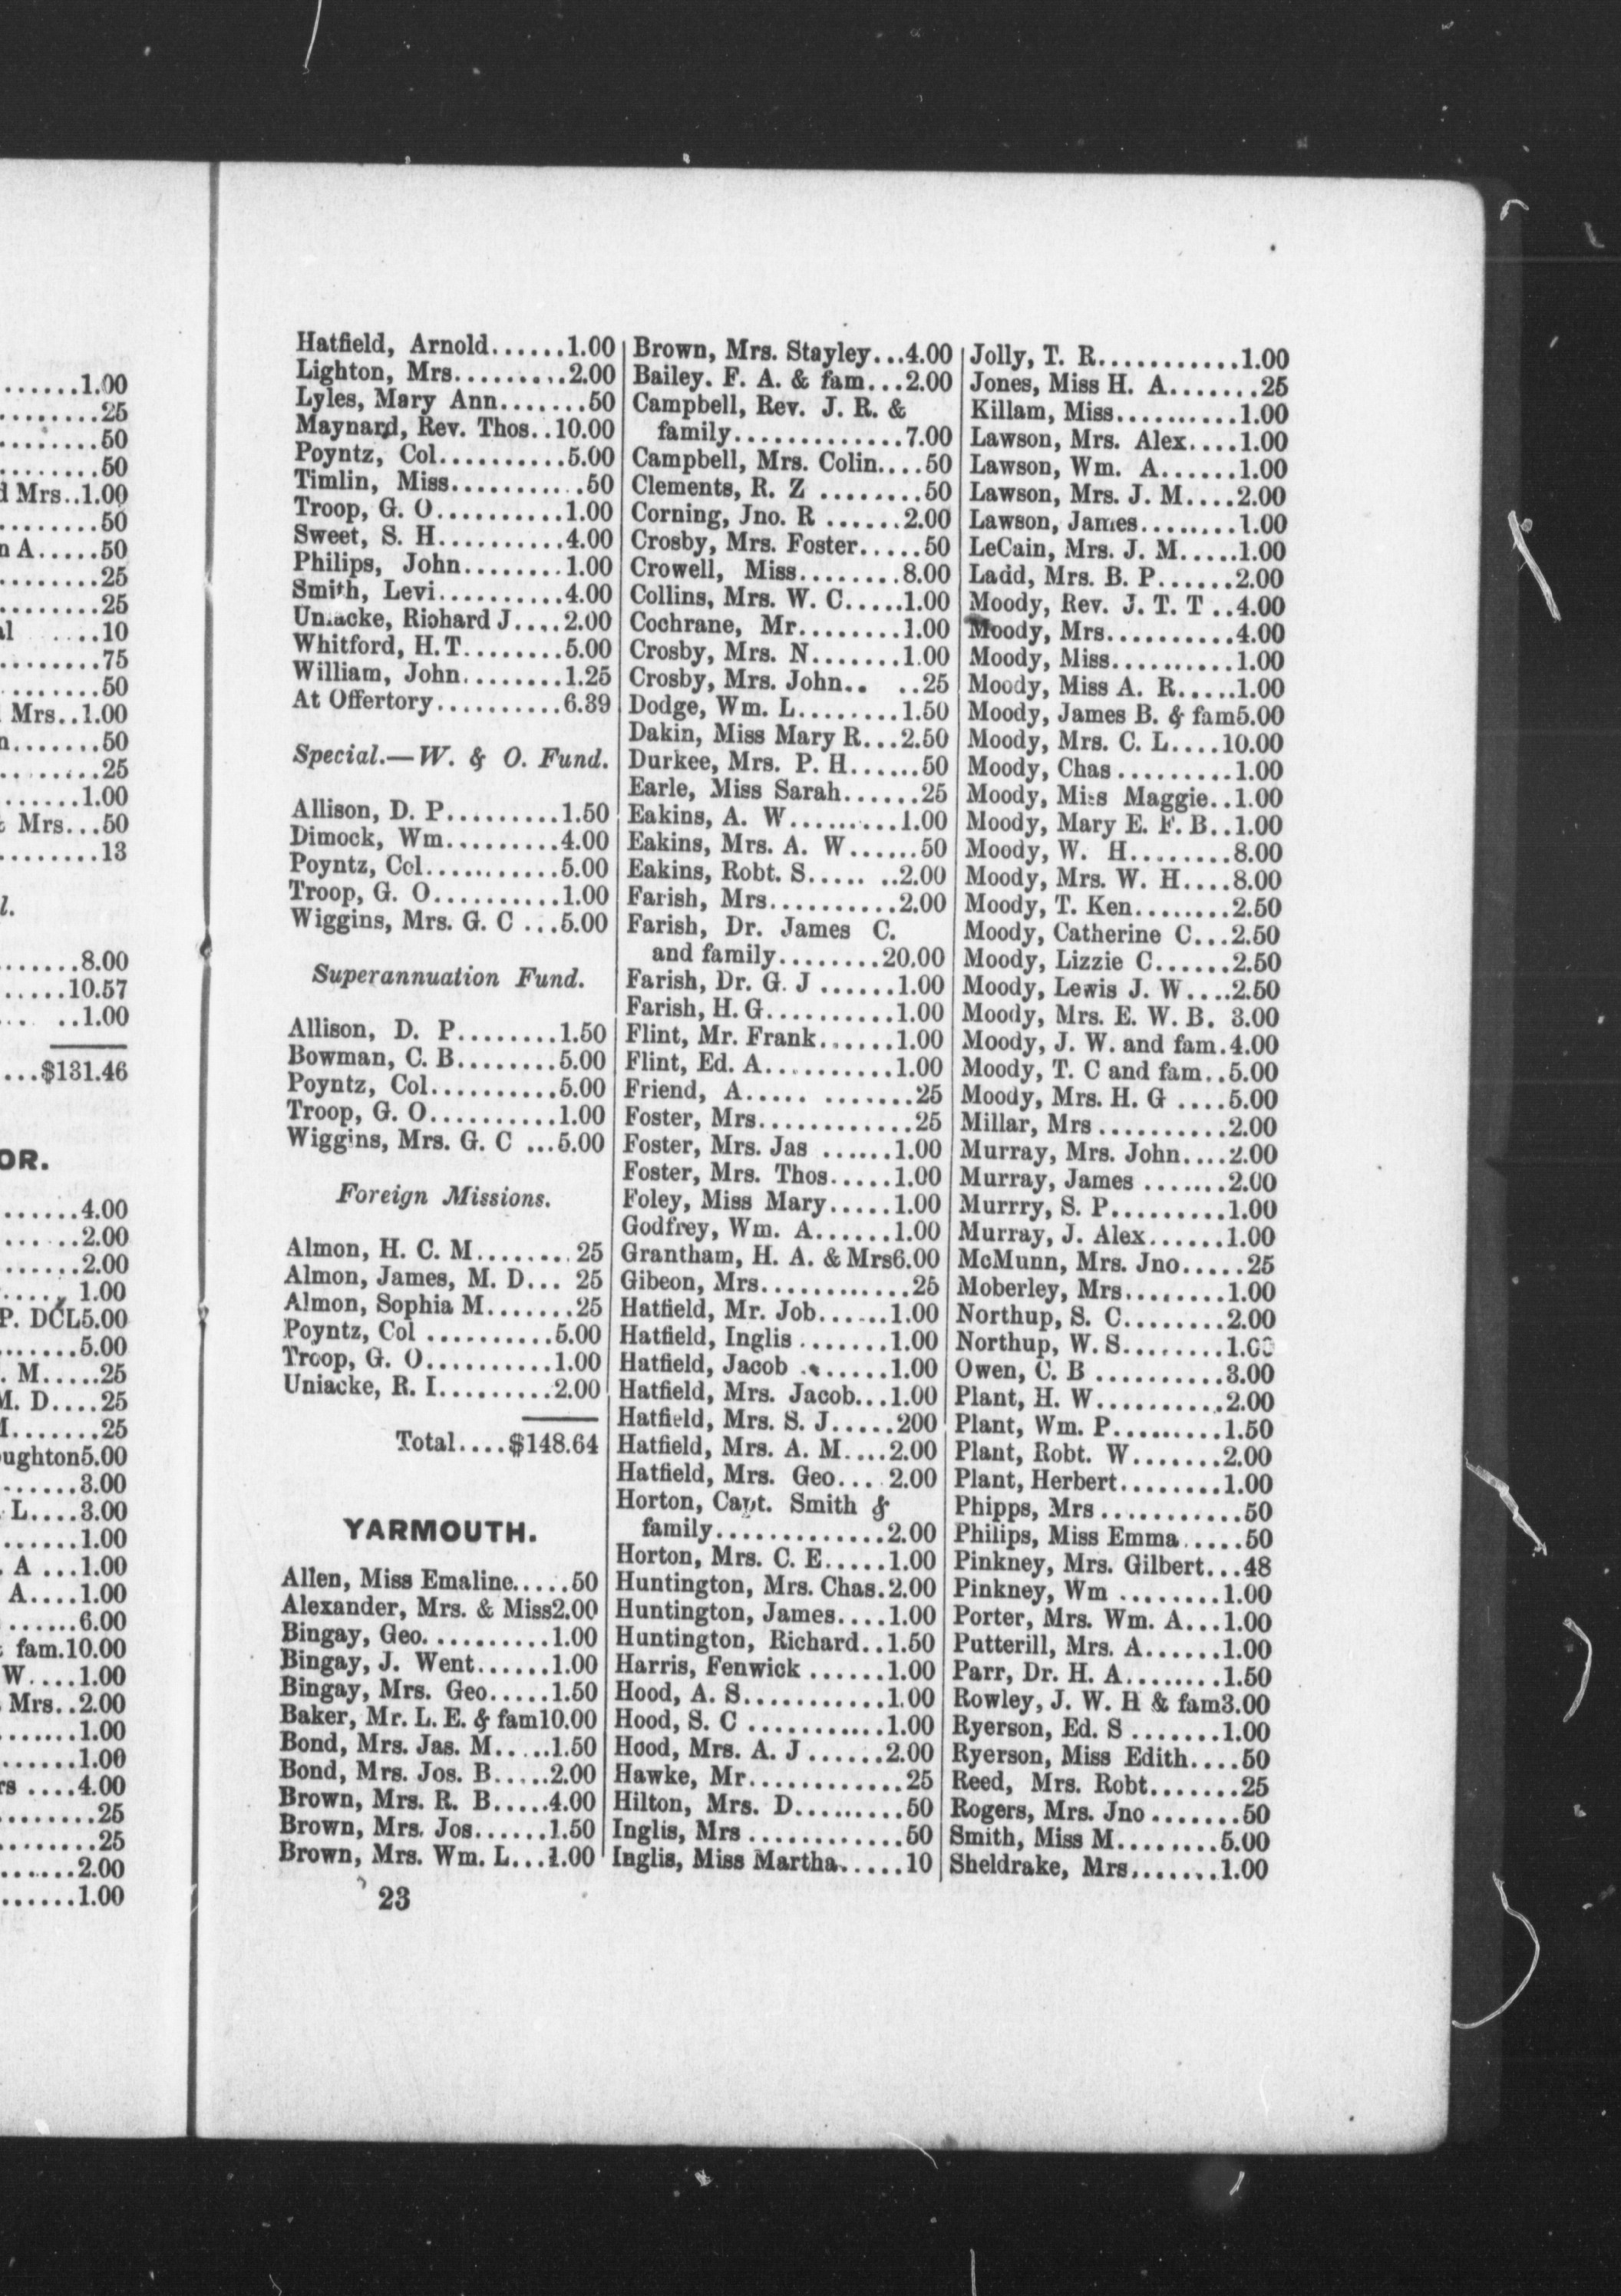 .......1.00
........25
........50
........50
d Mrs..1.00
........50
n A.....50
........25
........25
al ....10
........75
........50
Mrs..1.00
n.......50
........25
.......1.00
& Mrs...50
........13
l.
.......8.00
.....10.57
... ..1.00
...$131.46
OR.
......4.00
... ..2.00
......2.00
...., 1.00
P. DCL5.00
.......5.00
. M.....25
M. D....25
M.......25
oughton5.00
.......3.00
L....3.00
.......1.00
. A ...1.00
A....1.00
......6.00
& fam.10.00
W....1.00
Mrs..2.00
.......1.00
.......1.00
rs ....4.00
........25
........25
......2.00
......1.00
Hatfield, Arnold......1.00
Lighton, Mrs..........2.00
Lyles, Mary Ann.......50
Maynard, Rev. Thos..10.00
Poyntz, Col..........5.00
Timlin, Miss...........50
Troop, G. O..........1.00
Sweet, S. H..........4.00
Philips, John........1.00
Smith, Levi..........4.00
Uniacke, Richard J....2.00
Whitford, H.T........5.00
William, John........1.25
At Offertory..........6.39
Special.—W. & O. Fund.
Allison, D. P.........1.50
Dimock, Wm.........4.00
Poyntz, Col...........5.00
Troop, G. O..........1.00
Wiggins, Mrs. G. C ...5.00
Superannuation Fund.
Allison, D. P........1.50
Bowman, C. B........5.00
Poyntz, Col..........5.00
Troop, G. O..........1.00
Wiggins, Mrs. G. C ...5.00
Foreign Missions.
Almon, H. C. M........25
Almon, James, M. D... 25
Almon, Sophia M.......25
Poyntz, Col ..........5.00
Troop, G. O..........1.00
Uniacke, R. I.........2.00
Total....$148.64
YARMOUTH.
Allen, Miss Emaline.....50
Alexander, Mrs. & Miss2.00
Bingay, Geo..........1.00
Bingay, J. Went......1.00
Bingay, Mrs. Geo.....1.50
Baker, Mr. L. E. & fam10.00
Bond, Mrs. Jas. M.....1.50
Bond, Mrs. Jos. B.....2.00
Brown, Mrs. R. B.....4.00
Brown, Mrs. Jos......1.50
Brown, Mrs. Wm. L...1.00
23
Brown, Mrs. Stayley...4.00
Bailey. F. A. & fam...2.00
Campbell, Rev. J. R. &
family.............7.00
Campbell, Mrs. Colin....50
Clements, R. Z ........50
Corning, Jno. R ......2.00
Crosby, Mrs. Foster.....50
Crowell, Miss........8.00
Collins, Mrs. W. C.....1.00
Cochrane, Mr........1.00
Crosby, Mrs. N.......1.00
Crosby, Mrs. John.. ..25
Dodge, Wm. L........1.50
Dakin, Miss Mary R...2.50
Durkee, Mrs. P. H......50
Earle, Miss Sarah......25
Eakins, A. W.........1.00
Eakins, Mrs. A. W......50
Eakins, Robt. S..... ..2.00
Farish, Mrs..........2.00
Farish, Dr. James C.
and family........20.00
Farish, Dr. G. J ......1.00
Farish, H. G..........1.00
Flint, Mr. Frank......1.00
Flint, Ed. A..........1.00
Friend, A..... .......25
Foster, Mrs............25
Foster, Mrs. Jas ......1.00
Foster, Mrs. Thos.....1.00
Foley, Miss Mary.....1.00
Godfrey, Wm. A......1.00
Grantham, H. A. & Mrs6.00
Gibeon, Mrs............25
Hatfield, Mr. Job......1.00
Hatfield, Inglis .......1.00
Hatfield, Jacob .......1.00
Hatfield, Mrs. Jacob...1.00
Hatfield, Mrs. S. J.....200
Hatfield, Mrs. A. M....2.00
Hatfield, Mrs. Geo....2.00
Horton, Capt. Smith &
family.............2.00
Horton, Mrs. C. E.....1.00
Huntington, Mrs. Chas.2.00
Huntington, James....1.00
Huntington, Richard..1.50
Harris, Fenwick ......1.00
Hood, A. S...........1.00
Hood, S. C ...........1.00
Hood, Mrs. A. J ......2.00
Hawke, Mr.............25
Hilton, Mrs. D.........50
Inglis, Mrs ............50
Inglis, Miss Martha.....10
Jolly, T. R............1.00
Jones, Miss H. A.......25
Killam, Miss...........1.00
Lawson, Mrs. Alex....1.00
Lawson, Wm. A......1.00
Lawson, Mrs. J. M....2.00
Lawson, James.........1.00
LeCain, Mrs. J. M.....1.00
Ladd, Mrs. B. P......2.00
Moody, Rev. J. T. T ..4.00
Moody, Mrs..........4.00
Moody, Miss..........1.00
Moody, Miss A. R.....1.00
Moody, James B. & fam5.00
Moody, Mrs. C. L....10.00
Moody, Chas ..........1.00
Moody, Miss Maggie..1.00
Moody, Mary E. F. B..1.00
Moody, W. H........8.00
Moody, Mrs. W. H....8.00
Moody, T. Ken........2.50
Moody, Catherine C...2.50
Moody, Lizzie C......2.50
Moody, Lewis J. W....2.50
Moody, Mrs. E. W. B. 3.00
Moody, J. W. and fam.4.00
Moody, T. C and fam..5.00
Moody, Mrs. H. G ....5.00
Millar, Mrs ..........2.00
Murray, Mrs. John....2.00
Murray, James .......2.00
Murrry, S. P.........1.00
Murray, J. Alex......1.00
McMunn, Mrs. Jno.....25
Moberley, Mrs........1.00
Northup, S. C........2.00
Northup, W. S........1.00
Owen, C. B ..........3.00
Plant, H. W..........2.00
Plant, Wm. P.........1.50
Plant, Robt. W.......2.00
Plant, Herbert........1.00
Phipps, Mrs ...........50
Philips, Miss Emma.....50
Pinkney, Mrs. Gilbert...48
Pinkney, Wm ........1.00
Porter, Mrs. Wm. A...1.00
Putterill, Mrs. A......1.00
Parr, Dr. H. A........1.50
Rowley, J. W. H & fam3.00
Ryerson, Ed. S .......1.00
Ryerson, Miss Edith....50
Reed, Mrs. Robt.......25
Rogers, Mrs. Jno .......50
Smith, Miss M........5.00
Sheldrake, Mrs.......1.00